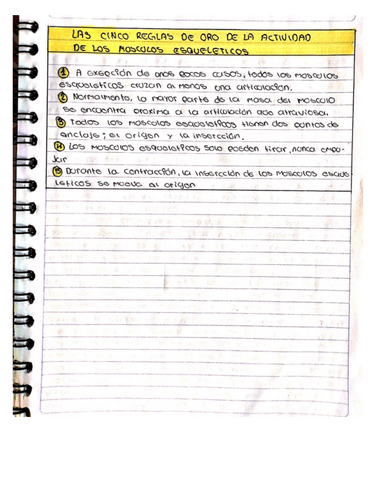 LAS CINCO REGLAS DE ORO DE LA ACTIVIDAD
DE LOS MUSCULOS ESQUELETICOS
1 A excepción de unos pocos casos, todos los musculos
esqueleticos cruzan al menos una articulación.
2 Normalmente, la mayor parte de la masa del musculo
se encuentra proxima a la articulación que atraviesa.
3 Todos los musculos esqueleticos tienen dos puntos de
anclaje; el origen y la insercción.
4 Los musculos esqueleticos solo pueden tirar, nunca empu-
jar
5 Durante la contracción, la insercción de los musculos esque-
leticos se mueve al origen